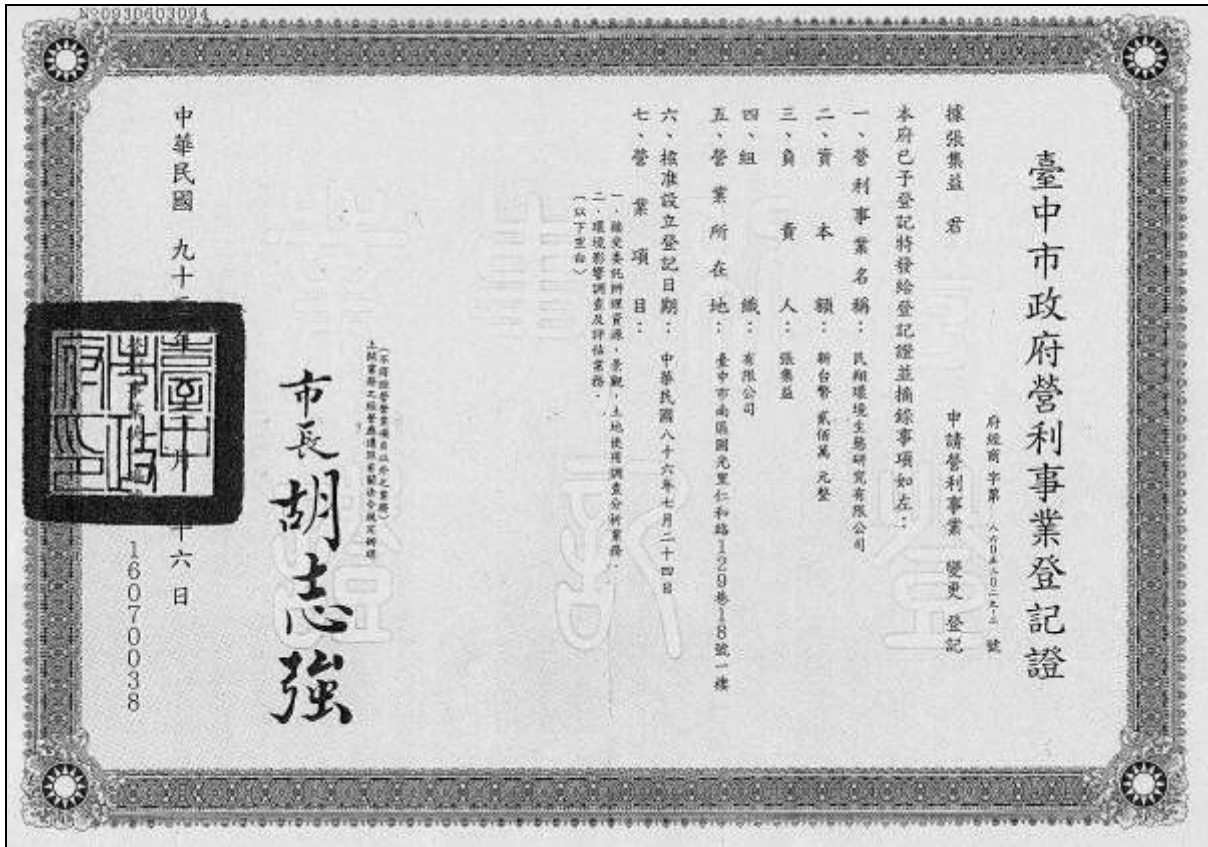 №0930603094
臺中市政府營利事業登記證
府經商 字第 號
據張集益 君 申請營利事業 變更 登記
本府已予登記特發給登記證並摘錄事項如左：
一、營利事業名稱：民翔環境生態研究有限公司
二、資本額：新台幣 貳佰萬 元整
三、負責人：張集益
四、組織：有限公司
五、營業所在地：臺中市南區國光里仁和路129巷18號一樓
六、核准設立登記日期：中華民國八十六年七月二十四日
七、營業項目：
一、接受委託辦理資源、景觀、土地使用調查分析業務。
二、環境影響調查及評估業務。
（以下空白）
（不得經營登記項目以外之業務）
上開業務之經營應遵照有關法令規定辦理
市長 胡志強
中華民國 九十 年 月 十六 日
16070038